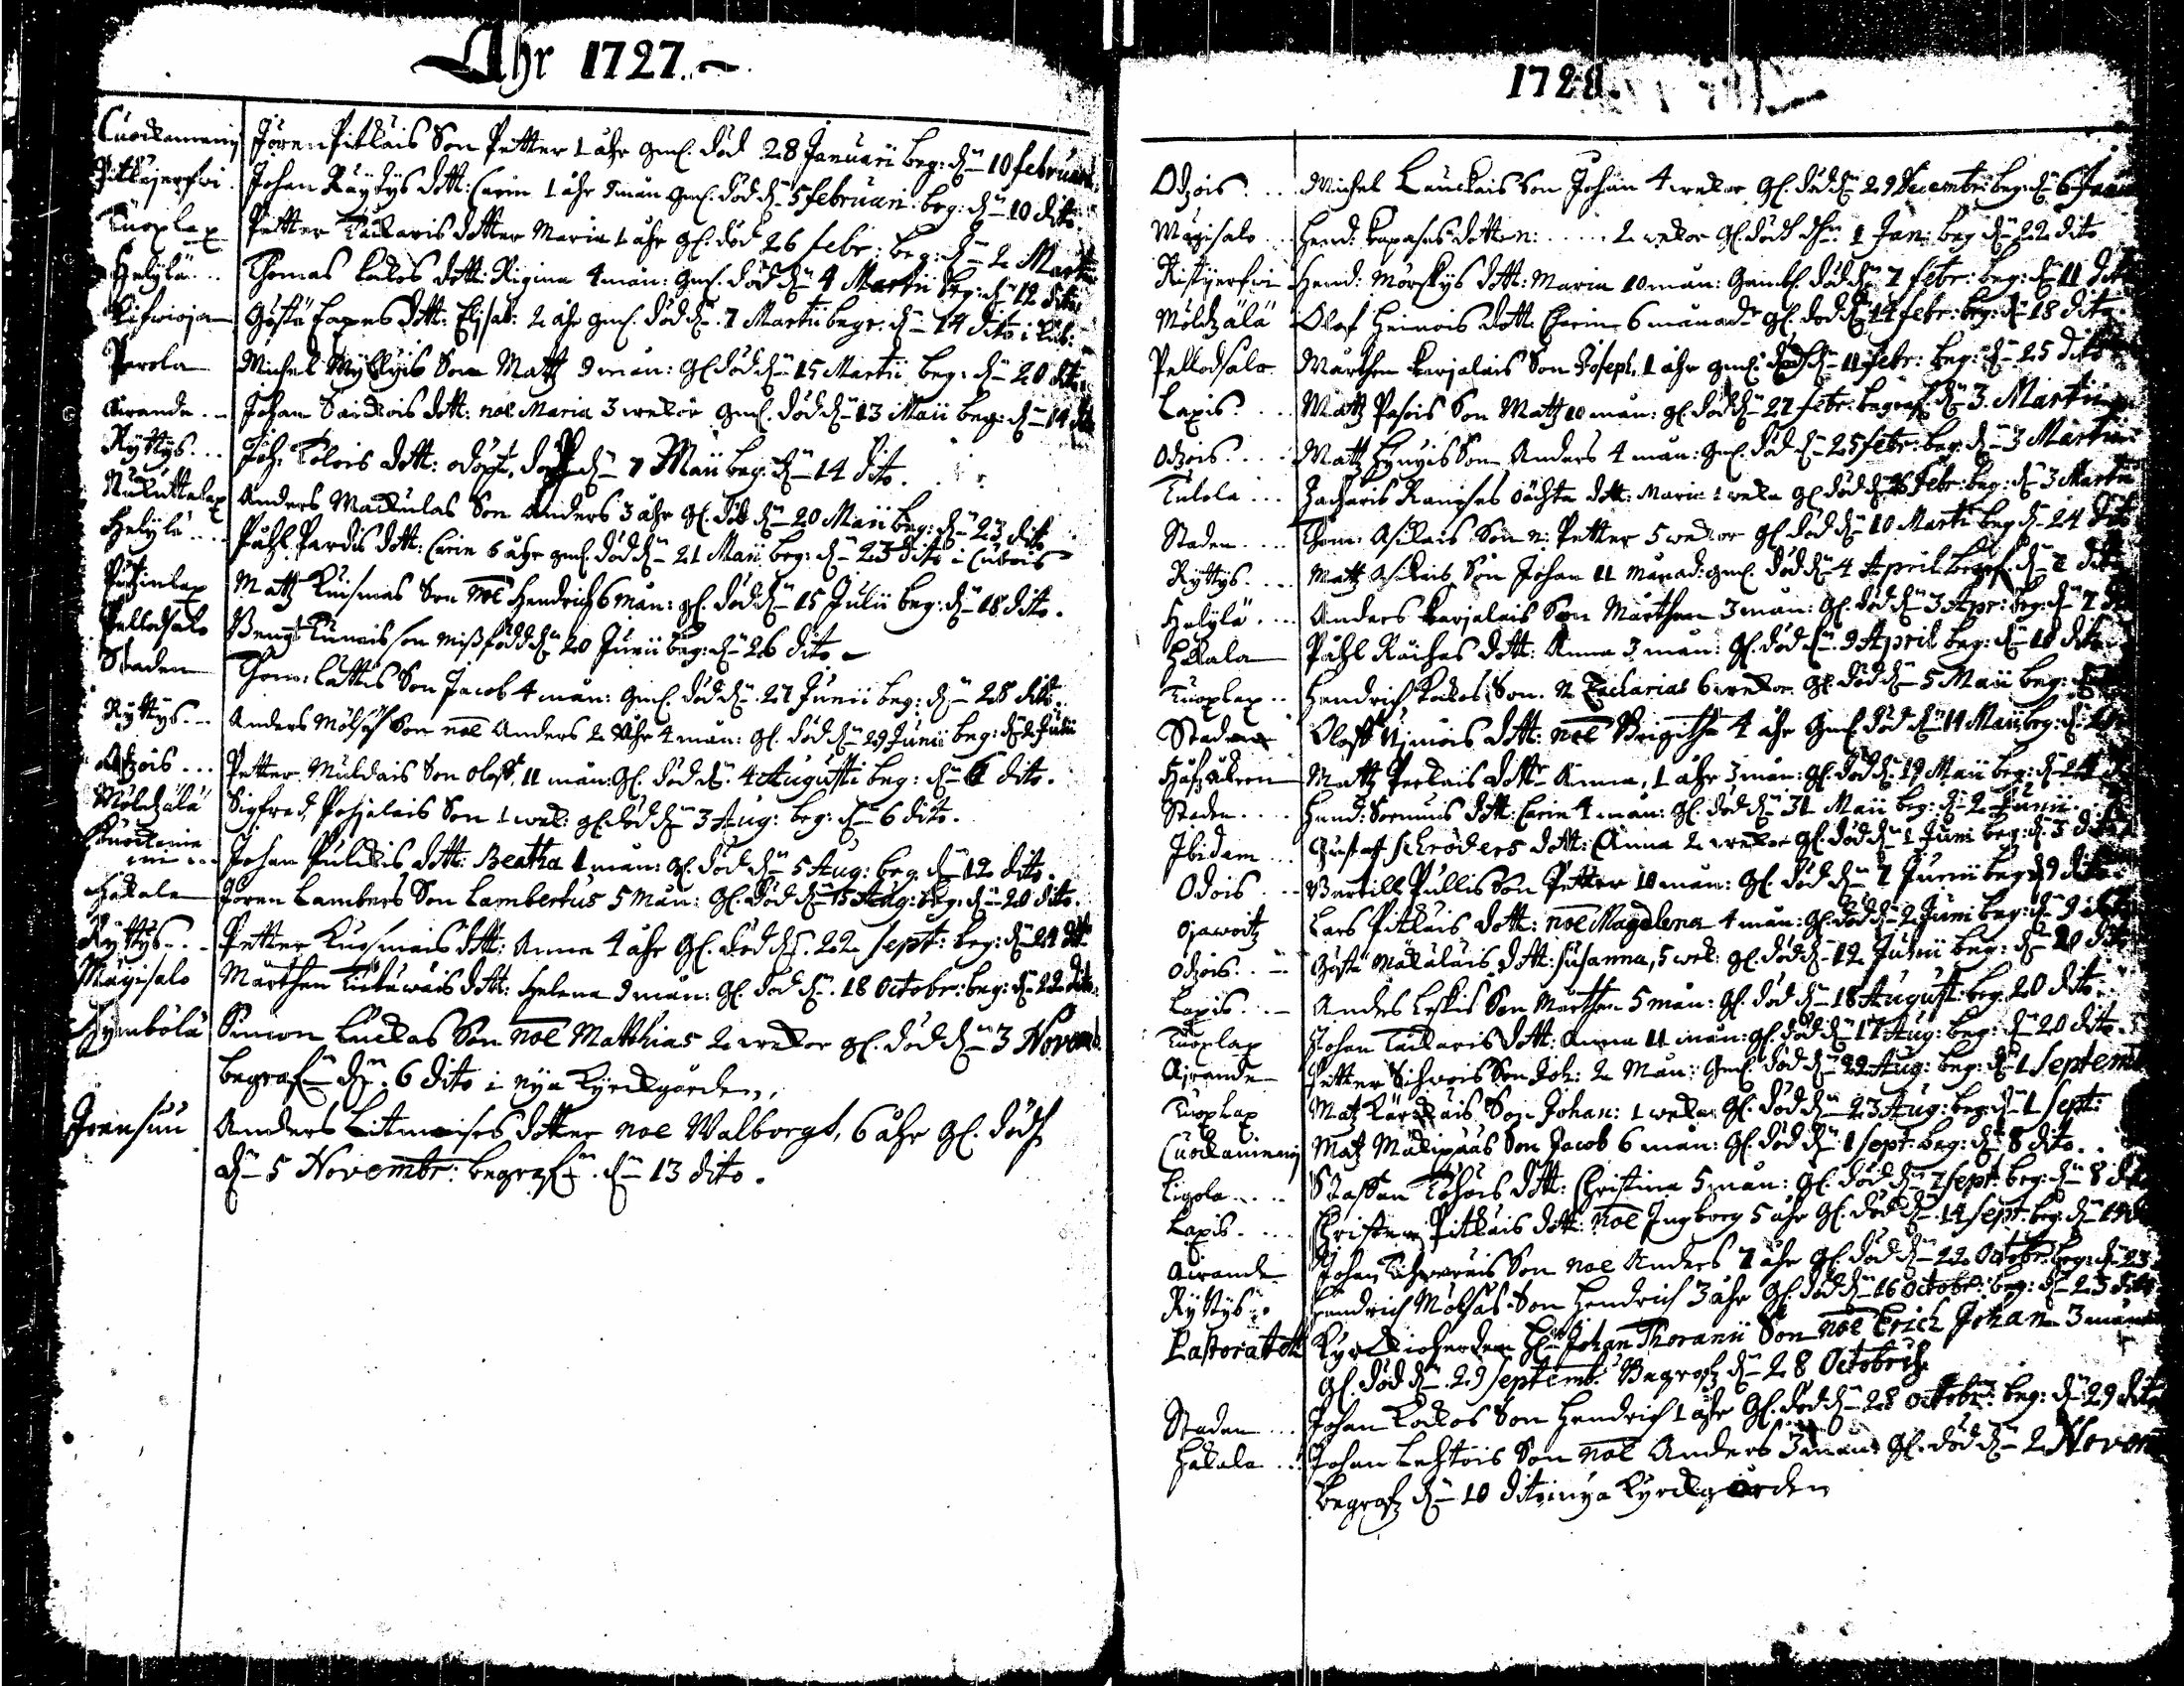 Ahr 1727.
Cuockaniemj Jören Pitkäis Son Petter 1 åhr gml. död 28 Januarii beg: dn 10 februari
Pitkäjerfwi. Johan Räyhys dott: Carin 1 åhr mån gml. död dn 5 februari. beg: dn 10 dito
Kuoxlax Petter Tackaris dotter Maria 1 åhr gl. död 26 febr: beg: dn 2 Martii
Helylä... Thomas Kickos dott: Regina 4 mån: gml. död dn 4 Martii beg: dn 12 dito
Kifwioja Gösta Eapes dott: Elisab: 2 åhr gml. död dn. 7 Martii begr: dn 14 dito i
Parola Michel Myllyis Son Matz 9 mån: gl död dn 15 Martii beg: dn 20 dito
Airanda.. Johan Saickois dott: noe Maria 3 wekor gml. död dn 13 Maii beg: dn 14 dito
Ryttys... Joh: Tolois dott: odöpt, död dn 7 Maii beg: dn 14 dito.
Nukuttalax Anders Mackulas Son Anders 3 åhr gl. död dn 20 Maii beg: dn 23 dito
Helylä.... Påhl Pardis dott: Carin 6 åhr gml. död dn 21 Maii beg: dn 23 dito i
Matz Kuismas Son noe Hendrich 6 mån: gl. död dn 15 Julii beg: dn 18 dito.
Pellodsalo Bengt Kunnais son missfödd dn 20 Junii beg: dn 26 dito
Staden Thom: Lattis Son Jacob 4 mån: gml. död dn 27 Junii beg: dn 28 dito.
Ryttys... Anders Mölsäs Son noe Anders 2 åhr 4 mån: gl. död dn 29 Junii beg: dn 2 Julii
Odzois... Petter Muldais Son oloff, 11 mån: gl. död dn. 4 Augusti beg: dn 6 dito.
Möldzälä Sigfred Pohjalais Son 1 wek: gl död dn 3 Aug: beg: dn 6 dito.
Cuockanie
mi... Johan Pulckis dott: Beatha 1 mån: gl. död dn 5 Aug: beg dn 12 dito.
Hakala Jören Lambers Son Lambertus 5 Mån: gl. död dn 15 Aug: beg: dn 20 dito.
Ryttys.. Petter Kuosmais dott: Anna 4 åhr gl. död dn. 22 sept: beg: dn 24 dito
Mäyisalo Mårthen Tickawais dott: Helena 9 mån: gl. död dn. 18 Octobr: beg: dn 22 dito
Hymbölä Simon Luckas Son noe Matthias 2 wekor gl. död dn 3 Novemb.
begrafn dn. 6 dito i nya Kyrckgården.
Jrensuu Anders Litmaises dotter noe Walborgt, 6 åhr gl. dödh
dn 5 Novembr: begrafn. dn 13 dito.
1728.
Odzois... Michel Lauckais Son Johan 4 wekor gl. död dn 29 Decembr: beg: dn 6 Janu
Mäyisalo.. Hend: Papases dotter n:..... 2 wekor gl. död dhn 1 Jan: beg dn 22 dito
Ristjerfwi Hend: Mörskys dott: Maria 10 mån: gambl. död dn 7 febr: beg: dn 11 dito
Möldzälä Olof Heinois dott: Carin 6 månader gl. död dn 14 febr: beg: dn 18 dito
Pellodsalo Mårthen Karjalais Son Joseph 1 åhr gml. död dn 11 febr: beg: dn 25 dito
Laxis... Matz Pasois Son Matz 10 mån: gl. död dn 27 febr: begraf. dn 3. Martii
Odzois.... Matz Hynyis Son Anders 4 mån: gml. död dn 25 febr: beg: dn 3 Martii
Tulola... Zacharis Ranoses öächta dott: Maria 1 weka gl död dn 28 febr: beg: dn 3 Martii
Staden.... Thom: Asikais Son n: Petter 5 wekor gl död dn 10 Marti beg dn 24 dito
Ryttys.... Matz Asikais Son Johan 11 månad: gml. död dn 4 April. begraf. dn 7 dito
Helylä.... Anders Karjalais Son Mårthen 3 mån: gl. död dn 3 Apr: beg: dn 7 di
Hakala Påhl Räihäs dott: Anna 3 mån: gl. död dn 9 April beg: dn 18 dito
Kuoxlax.. Hendrich Kockos Son. n Zacharias 6 wekor gl. död dn 5 Maii beg: dn
Staden Oloff Ujmois dott: noe Brigitha 4 åhr gml. död dn 11 Maii beg: dn
Matz Parkais dottr Anna, 1 åhr 3 mån: gl. död dn 19 Maii beg: dn
Staden.... Hend: Sormuns dott: Carin 4 mån: gl. död dn 31 Maii beg: dn 2 Junii.
Ibidem... Gustaf Schröders dott: Anna 2 wekor gl. död dn 1 Juni beg: dn 3 dito
Odois... Bertill Pullis Son Petter 10 mån: gl. död dn 7 Junii beg dn 9 dito
Ojawoitz Lars Pitkäis dott: noe Magdalena 4 mån: gl. död dn 2 Juni beg: dn 9 dito
Odzois.. Gösta Mäkäläis dott: Susanna, 5 wek: gl. död dn 12 Junii beg: dn 20 dito
Laxis... Anders Leskis Son Mårthen 5 mån: gl. död dn 18 August: beg. 20 dito
Kuoxlax Johan Tackaris dott: Anna 11 mån: gl. död dn 17 Aug: beg: dn 20 dito.
Ajranda Petter Sihwois Son Joh: 2 Mån: gml. död dn 22 Aug: beg: dn 1 Septemb
Kuoxlax Matz Kärckäis Son Johan: 1 weka gl. död dn 23 Aug: beg: dn 1 septi
Cuockaniemj Matz Mäkipääs Son Jacob 6 mån: gl. död dn 1 sept: beg: dn 8 dito..
Ligola.... Staffan Töhöis dott: Christina 5 mån: gl. död dn 7 sept: beg: dn 8 dito
Laxis.... Christer Pitkäis dott: noe Ingborg 5 åhr gl. död dn 14 sept: beg: dn
Airanda Johan Tihweräis Son noe Anders 7 åhr gl. död dn 22 Octobr: beg: dn 23
Ryttys.. Hendrich Mölsäs Son Hendrich 3 åhr gl. död dn 16 Octobr: beg: dn 23 dito
Pastoratet Kyrckioherden Hrn Johan Thoranii Son noe Erich Johan 3 månad
gl. död dn. 29 septemb: Begrafz dn 28 Octobris
Staden... Johan Kockos Son Hendrich 1 åhr gl. död dn 28 octobr: beg: dn 29 dito
Hakala... Johan Lehtois Son noe Anders 3 mån: gl. död dn 2 Novem
begrafz dn 10 dito i nya Kyrckgården